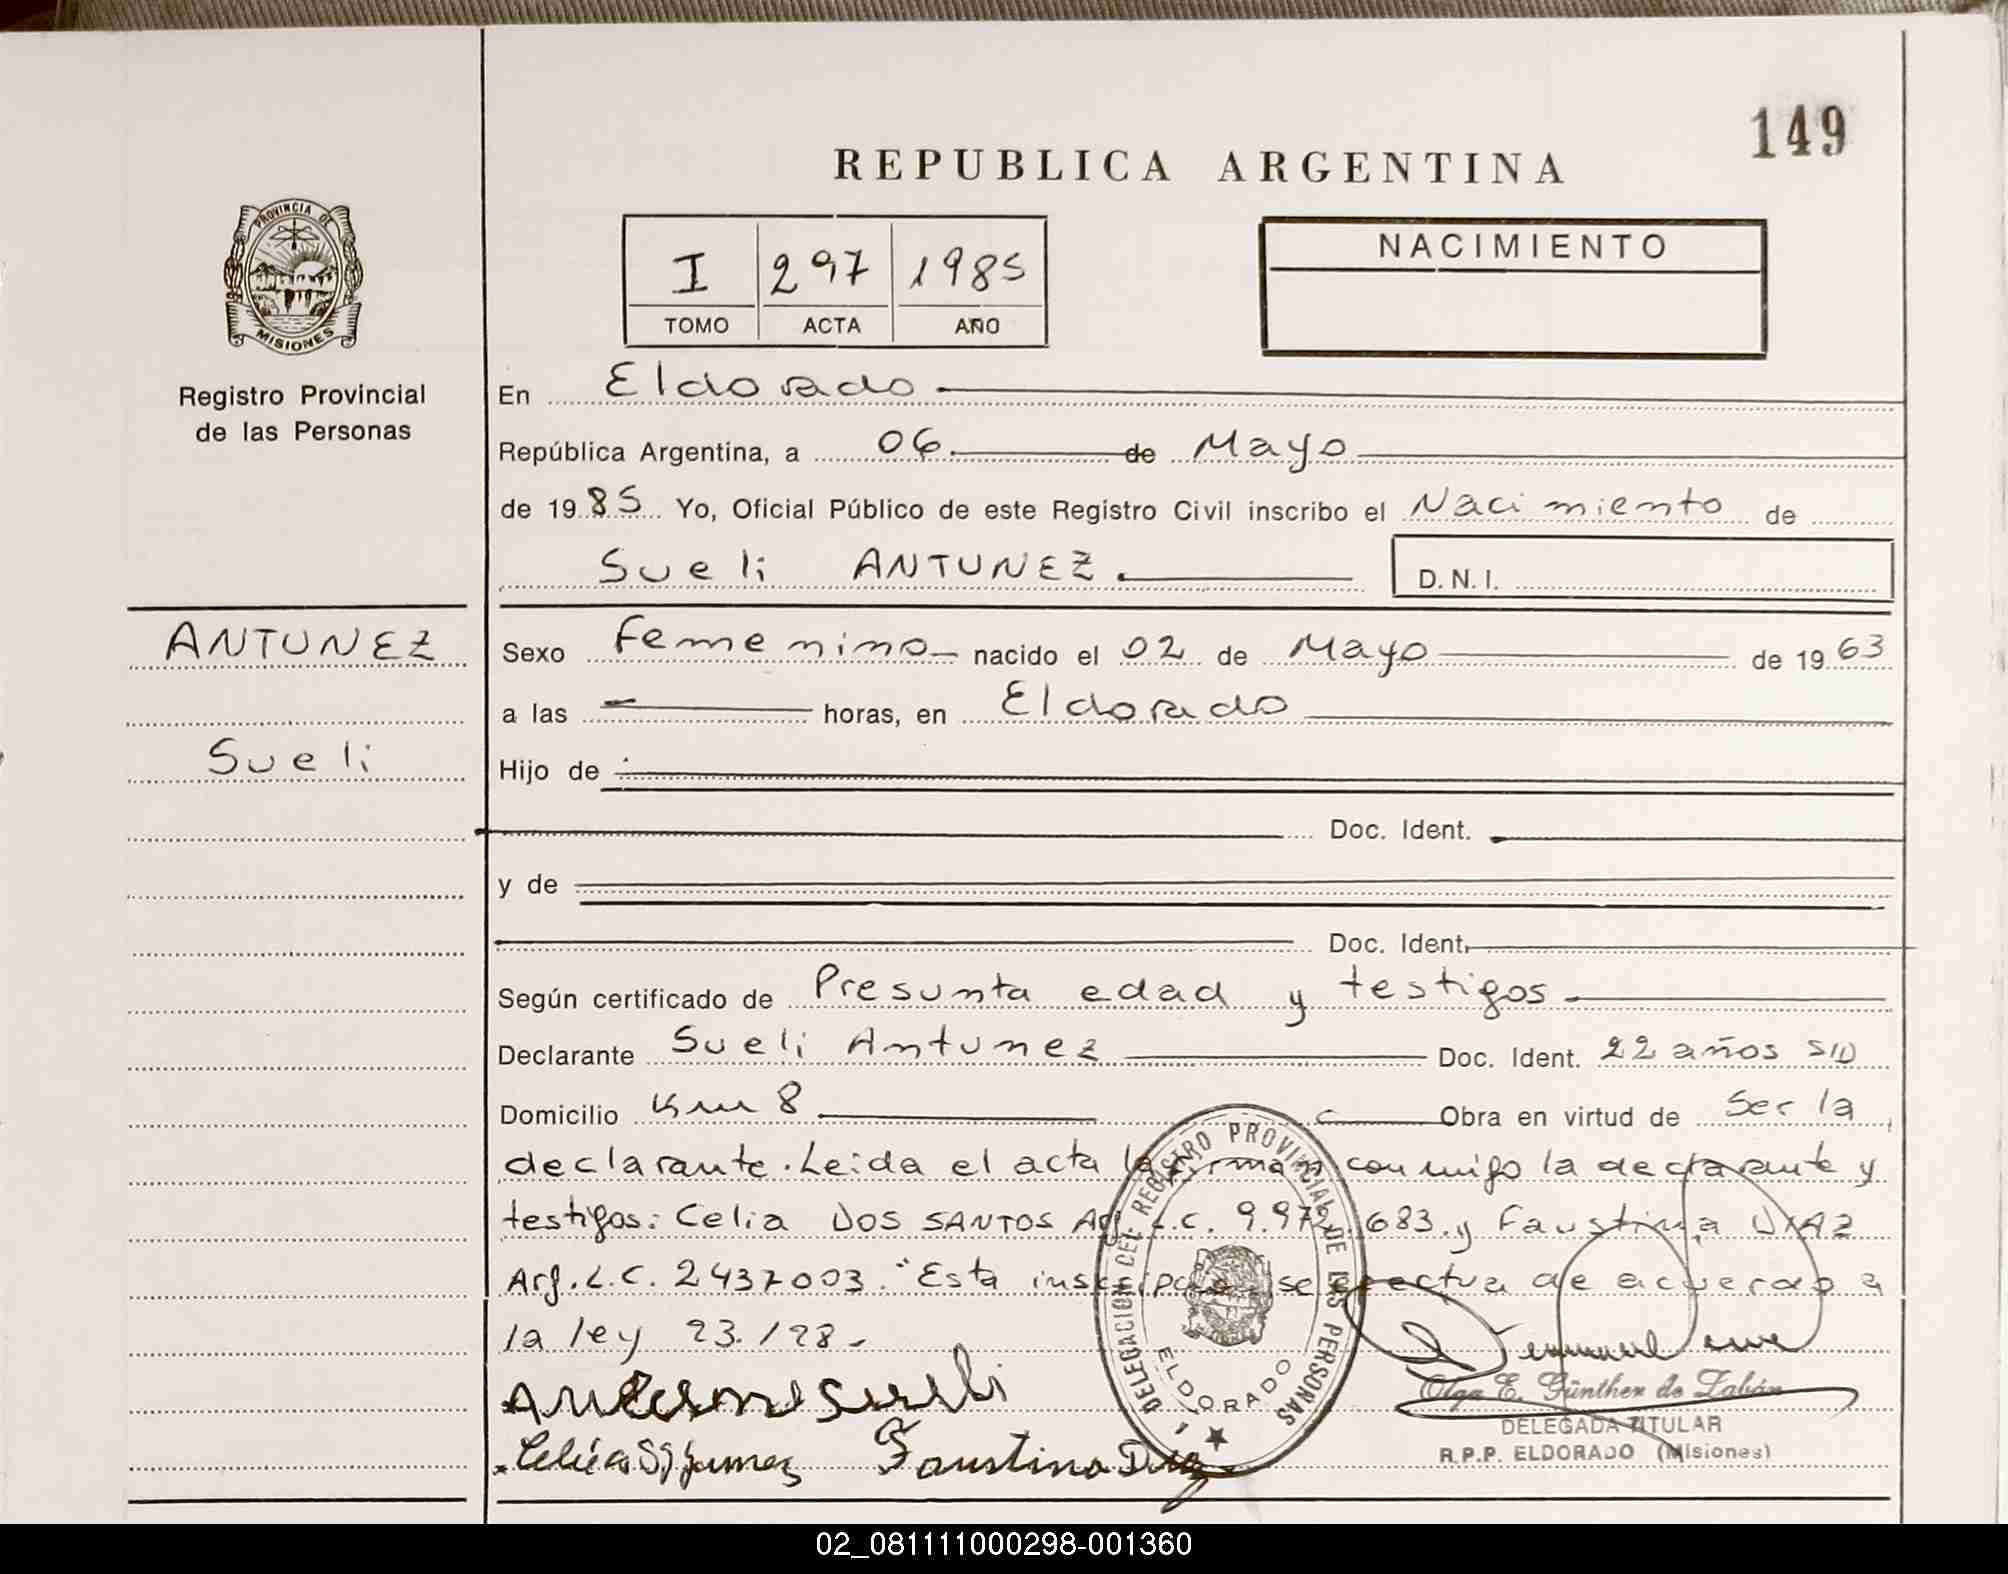 149
REPUBLICA ARGENTINA
PROVINCIA DE
MISIONES
Registro Provincial
de las Personas
I 297 1985
TOMO ACTA AÑO
NACIMIENTO
En Eldorado
República Argentina, a 06 de Mayo
de 1985 Yo, Oficial Público de este Registro Civil inscribo el Nacimiento de
Sueli ANTUNEZ. D.N.I.
ANTUNEZ
Sueli
Sexo Femenino nacido el 02 de Mayo de 1963
a las — horas, en Eldorado
Hijo de
Doc. Ident.
y de
Doc. Ident.
Según certificado de Presunta edad y testigos
Declarante Sueli Antunez Doc. Ident. 22 años S/D
Domicilio Km 8 Obra en virtud de Ser la
declarante. Leida el acta la firman conmigo la declarante y
testigos: Celia DOS SANTOS Arg. L.C. 9.972.683. y Faustina DIAZ
Arg. L.C. 2437003. "Esta inscripción se efectua de acuerdo a
la ley 23.128.
Sueli
Faustina Diaz
DELEGACION DEL REGISTRO PROVINCIAL DE LAS PERSONAS
ELDORADO
Olga E. Günther de Zabán
DELEGADA TITULAR
R.P.P. ELDORADO (Misiones)
02_081111000298-001360